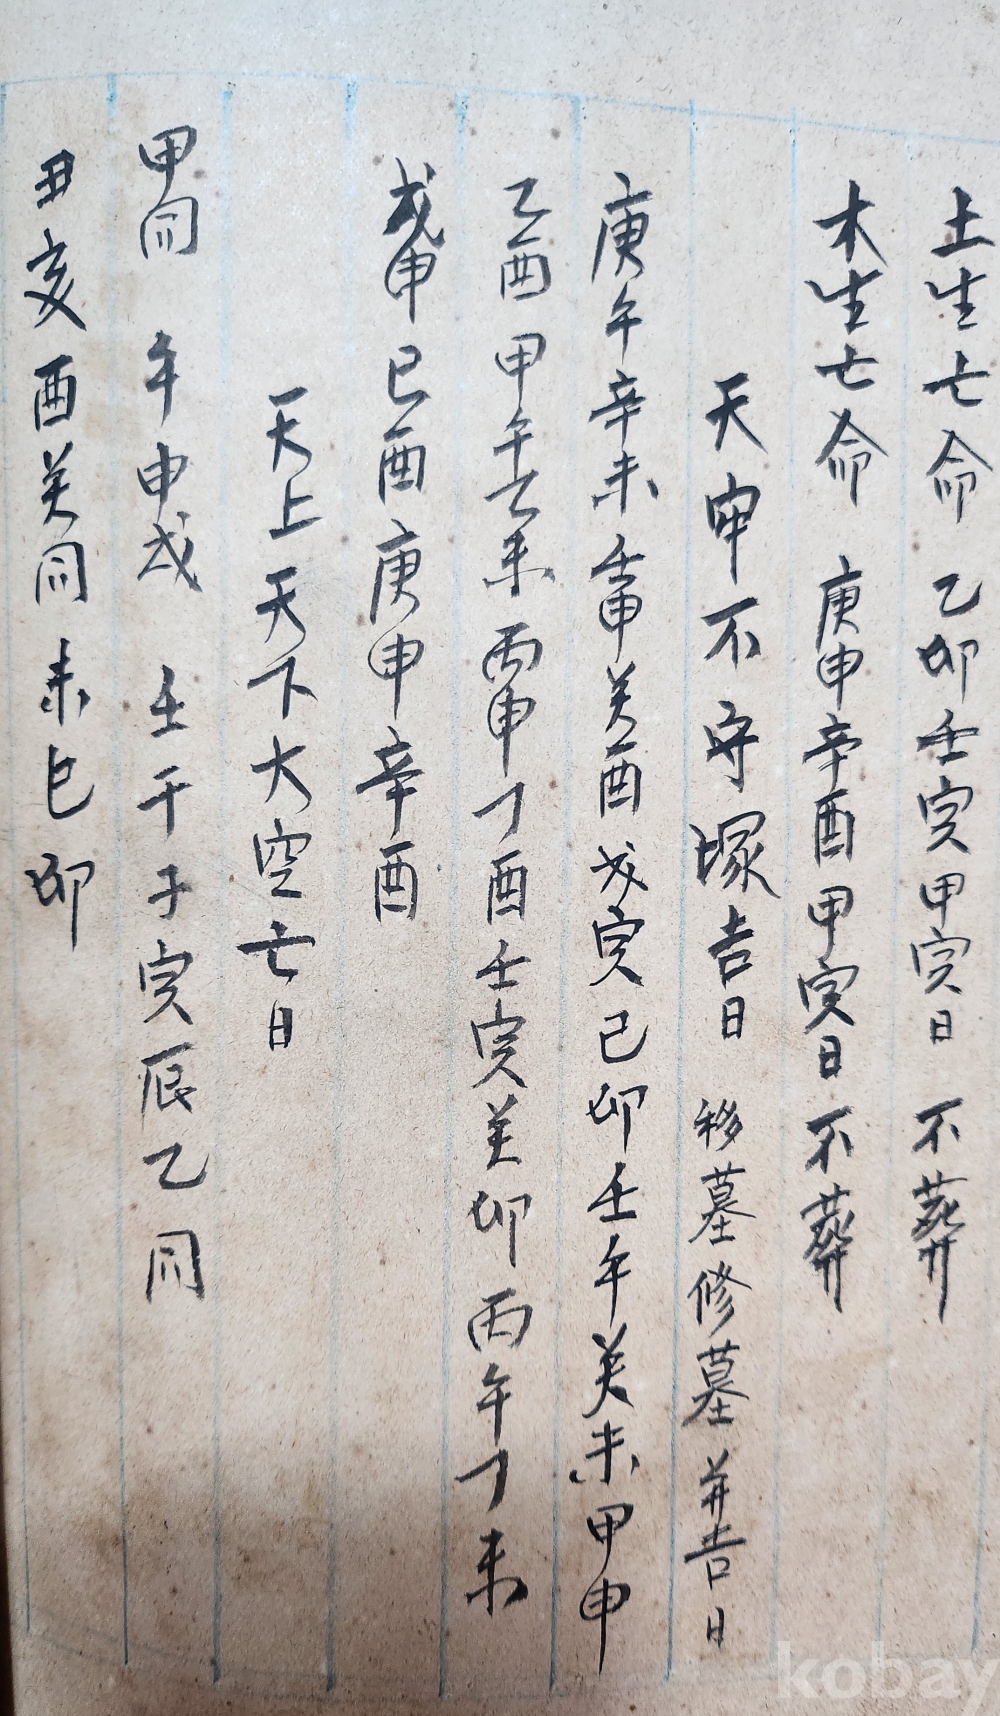 土生亡命 乙卯壬寅甲寅日 不葬
木生亡命 庚申辛酉甲寅日 不葬
天申不守塚吉日 移墓修墓並吉日
庚午辛未壬申癸酉戊寅己卯壬午癸未甲申
乙酉甲午乙未丙申丁酉壬寅癸卯丙午丁未
戊申己酉庚申辛酉
天上天下大空亡日
甲同 午申戌 壬干子寅辰乙同
丑亥酉癸同未巳卯
kobay